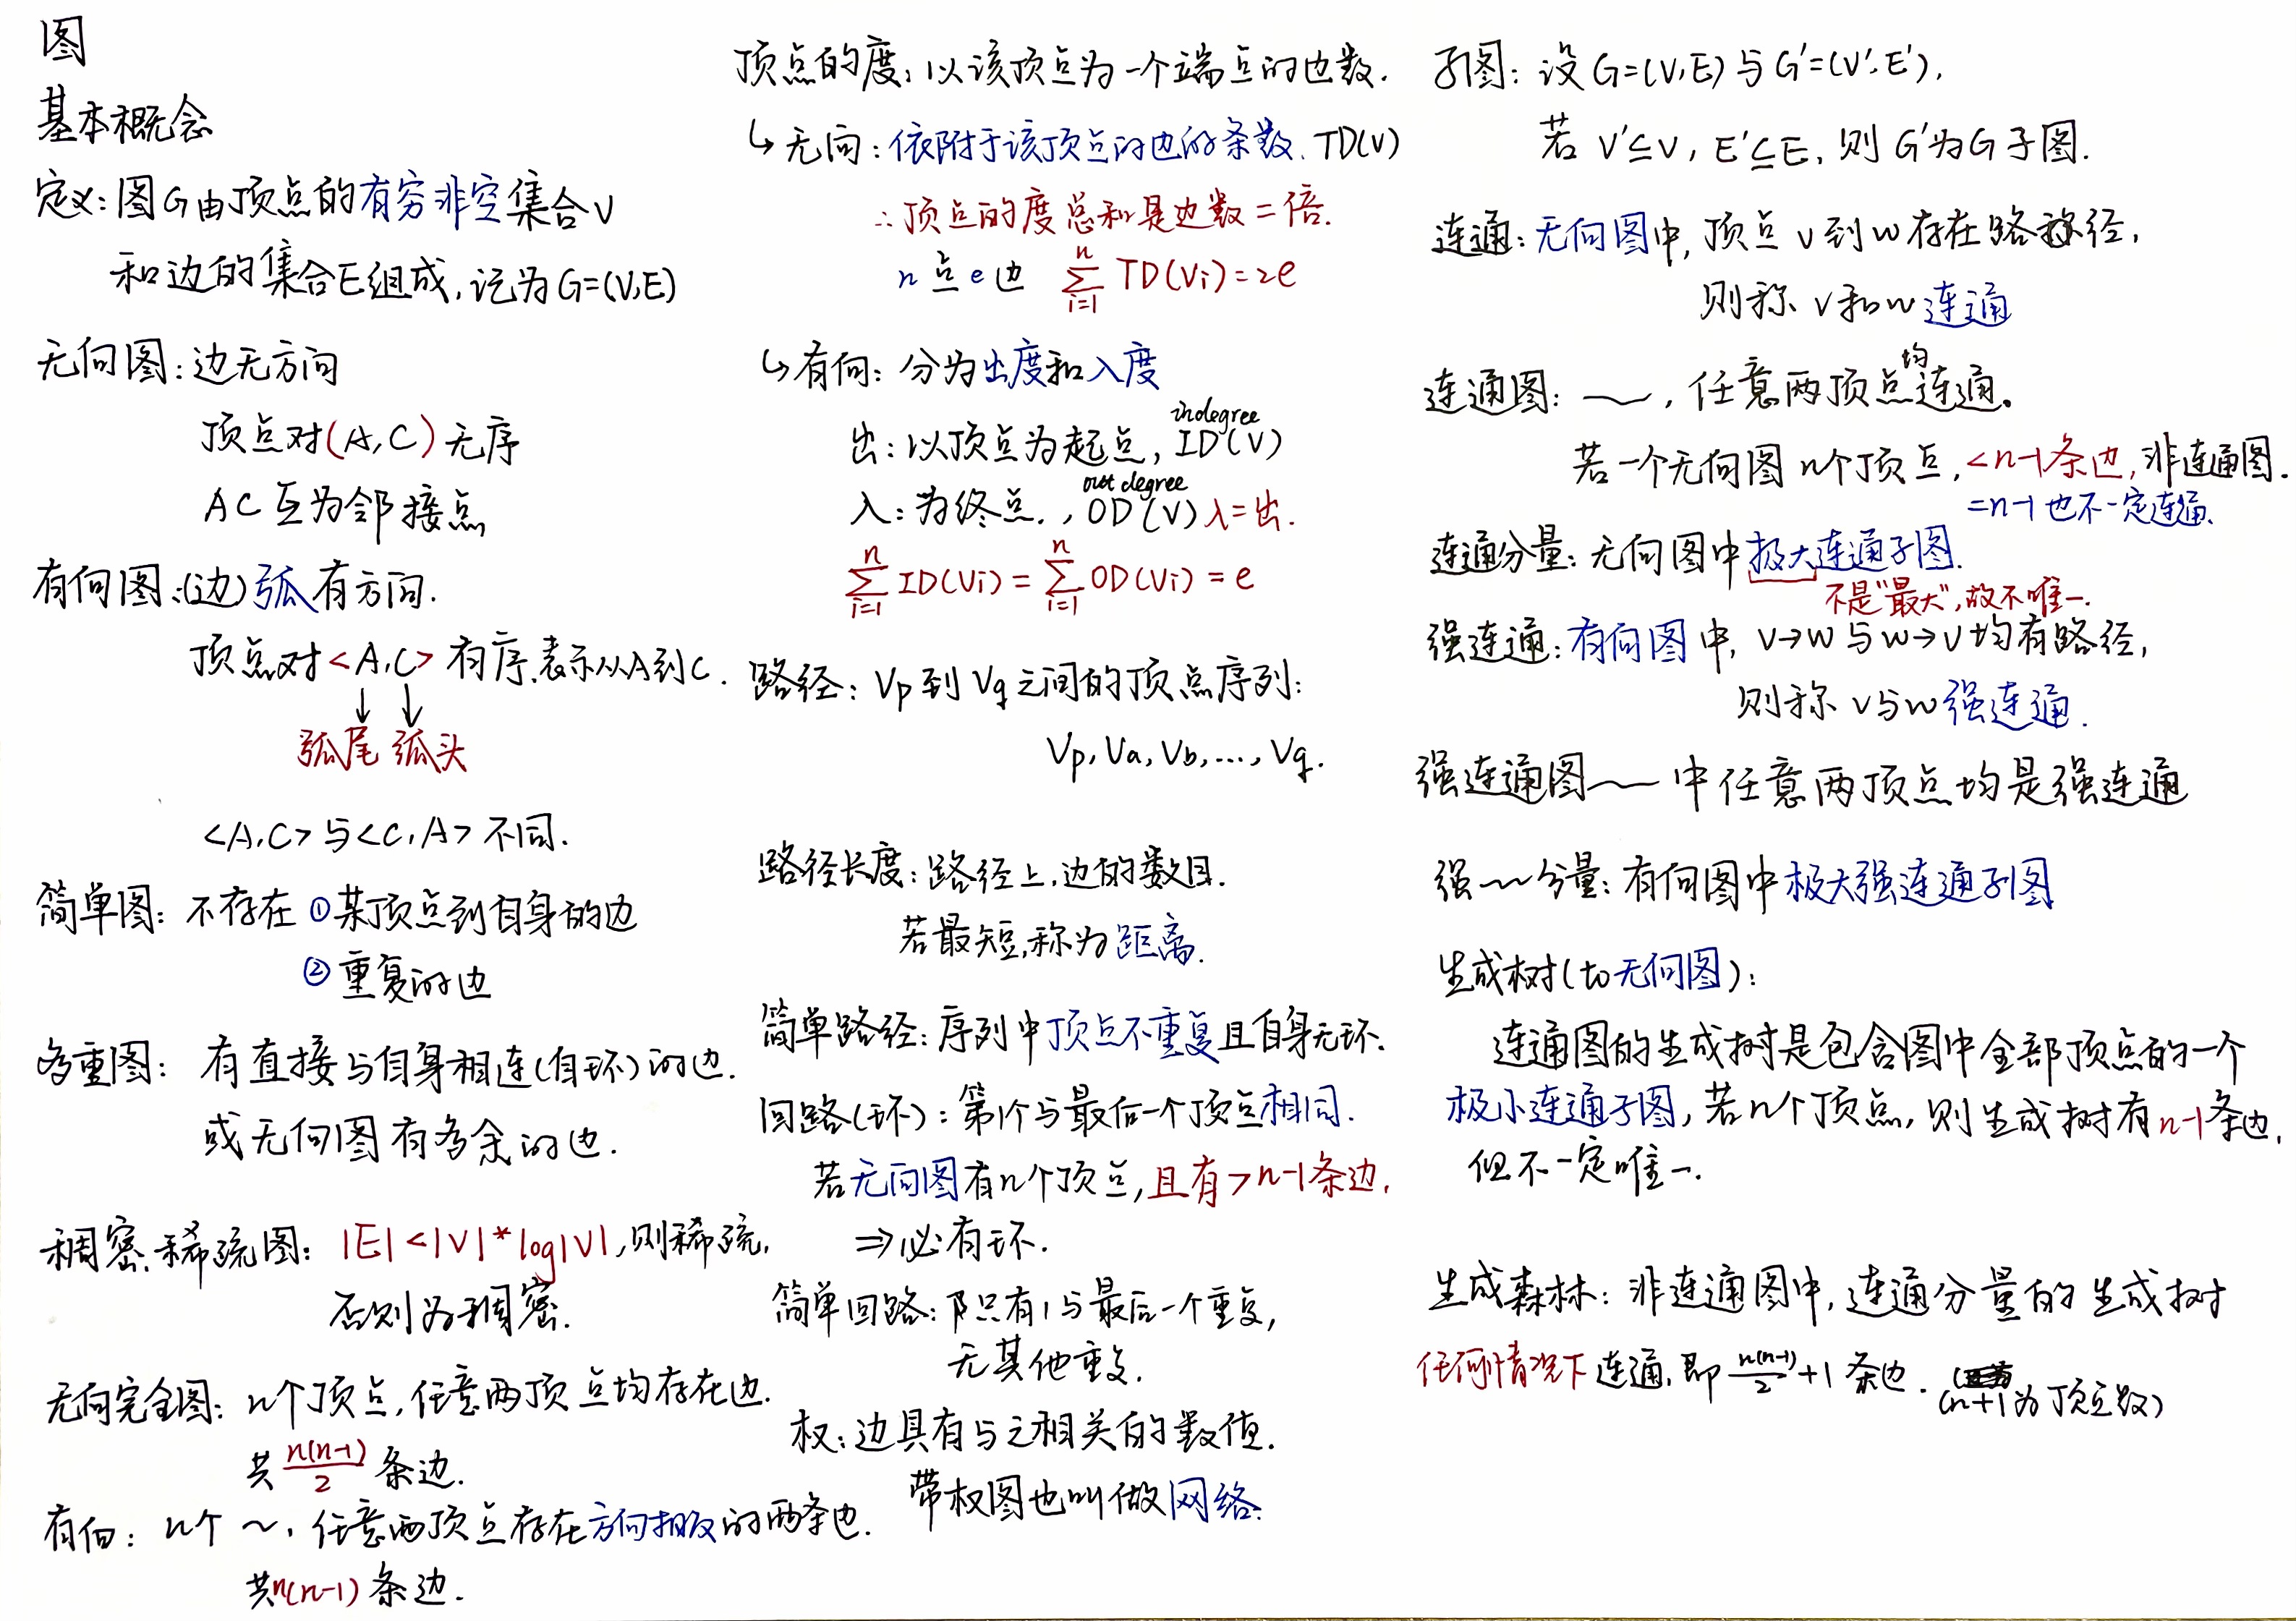 图
基本概念
定义:图G由顶点的有穷非空集合V
和边的集合E组成,记为G=(V,E)
无向图:边无方向
顶点对(A,C)无序
AC互为邻接点
有向图:(边)弧有方向.
顶点对<A,C>有序,表示从A到C.
↓ ↓
弧尾 弧头
<A,C>与<C,A>不同.
简单图: 不存在 ①某顶点到自身的边
②重复的边
多重图: 有直接与自身相连(自环)的边.
或无向图有多余的边.
稠密、稀疏图: |E|<|V|*log|V|,则稀疏,
否则为稠密.
无向完全图: n个顶点,任意两顶点均存在边.
共n(n-1)/2条边.
有向: n个 ~, 任意两顶点存在方向相反的两条边.
共n(n-1)条边.
顶点的度: 以该顶点为一个端点的边数.
↳无向: 依附于该顶点的边的条数. TD(V)
∴顶点的度总和是边数二倍.
n点e边 ∑_{i=1}^{n} TD(Vi)=2e
↳有向: 分为出度和入度
indegree
出: 以顶点为起点, ID(V)
out degree
入: 为终点., OD(V) 入=出.
∑_{i=1}^{n} ID(Vi) = ∑_{i=1}^{n} OD(Vi) = e
路径: Vp到Vq之间的顶点序列:
Vp, Va, Vb, ..., Vq.
路径长度: 路径上,边的数目.
若最短,称为距离.
简单路径: 序列中顶点不重复且自身无环.
回路(环): 第1个与最后一个顶点相同.
若无向图有n个顶点,且有>n-1条边,
⇒必有环.
简单回路: 只有1与最后一个重复,
无其他重复.
权: 边具有与之相关的数值.
带权图也叫做网络.
子图: 设G=(V,E)与G'=(V',E'),
若 V'⊆V, E'⊆E, 则G'为G子图.
连通: 无向图中,顶点v到w存在路径,
则称 v和w连通
连通图: ~, 任意两顶点均连通。
若一个无向图n个顶点,<n-1条边,非连通图.
=n-1也不一定连通.
连通分量: 无向图中极大连通子图.
不是"最大",故不唯一.
强连通: 有向图中, v→w与w→v均有路径,
则称 v与w强连通.
强连通图~中任意两顶点均是强连通
强~分量: 有向图中极大强连通子图
生成树(to无向图):
连通图的生成树是包含图中全部顶点的一个
极小连通子图,若n个顶点,则生成树有n-1条边,
但不一定唯一.
生成森林: 非连通图中,连通分量的生成树
任何情况下连通,即n(n-1)/2+1条边. (n+1为顶点数)